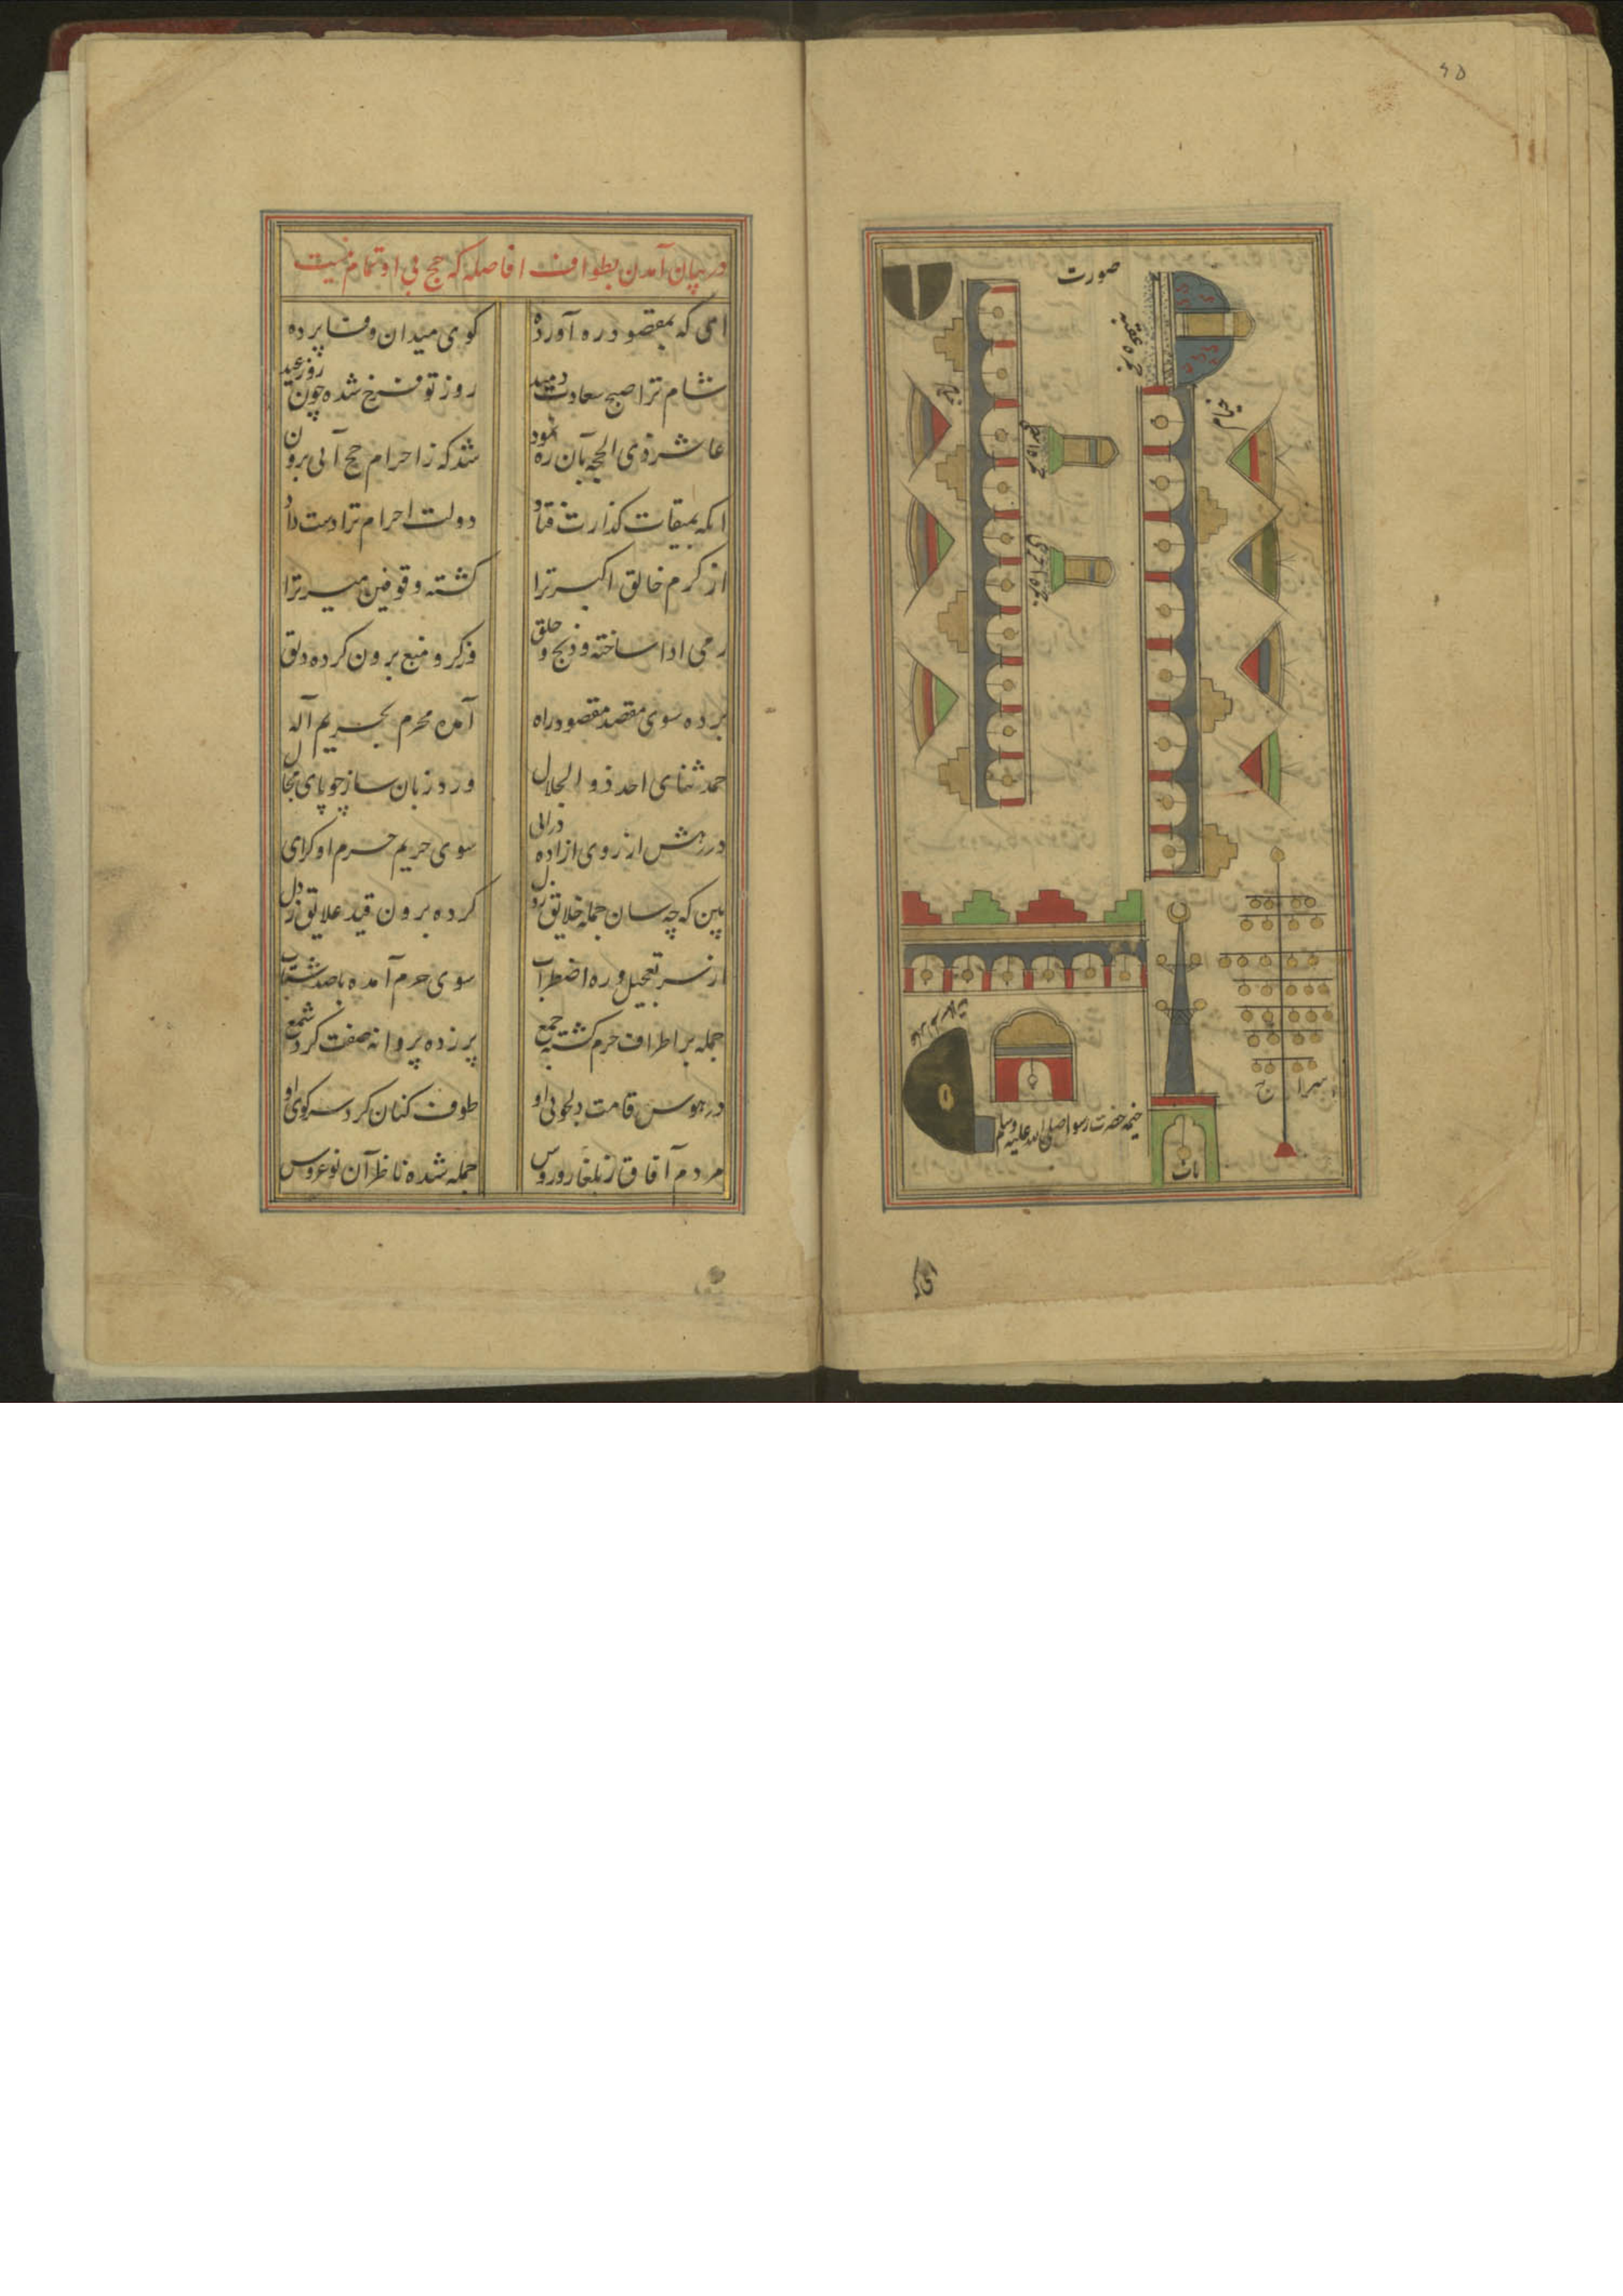 ۶۵
صورت
جمره عقبه
خیام
خیام
سراج
خیمه حضرت رسول صلی الله علیه وسلم
باب
در بیان آمدن بطواف افاضه که حج بی او تمام نیست
ای که بمقصود ره آورده کوی میدان وفا برده
شام ترا صبح سعادت دمید روز تو فرخ شده چون روز عید
عاشر ذی الحجه بآن ره نمود شد که ز احرام حج آیی برون
انکه بمیقات کذارت فتاد دولت احرام ترا دست داد
از کرم خالق اکبر ترا کشته وقوفین میسر ترا
رمی ادا ساخته و ذبح و حلق برون کرده دلق
برده سوی مقصد مقصود راه آمده محرم بحریم آله
حمد ثنای احد ذو الجلال ورد زبان ساز چو یابی مجال
در رهش از روی اراده درای سوی حریم حرم او کرای
بین که چه سان جمله خلایق ز دل کرده برون قید علایق ز دل
از سر تعجیل و ره اضطراب سوی حرم آمده با صد شتاب
جمله بر اطراف حرم کشته جمع پر زده پروانه صفت کرد شمع
در هوس قامت دلجوی او طوف کنان کرد سر کوی او
مردم آفاق ز بلغار و روس جمله شده ناظر آن نو عروس